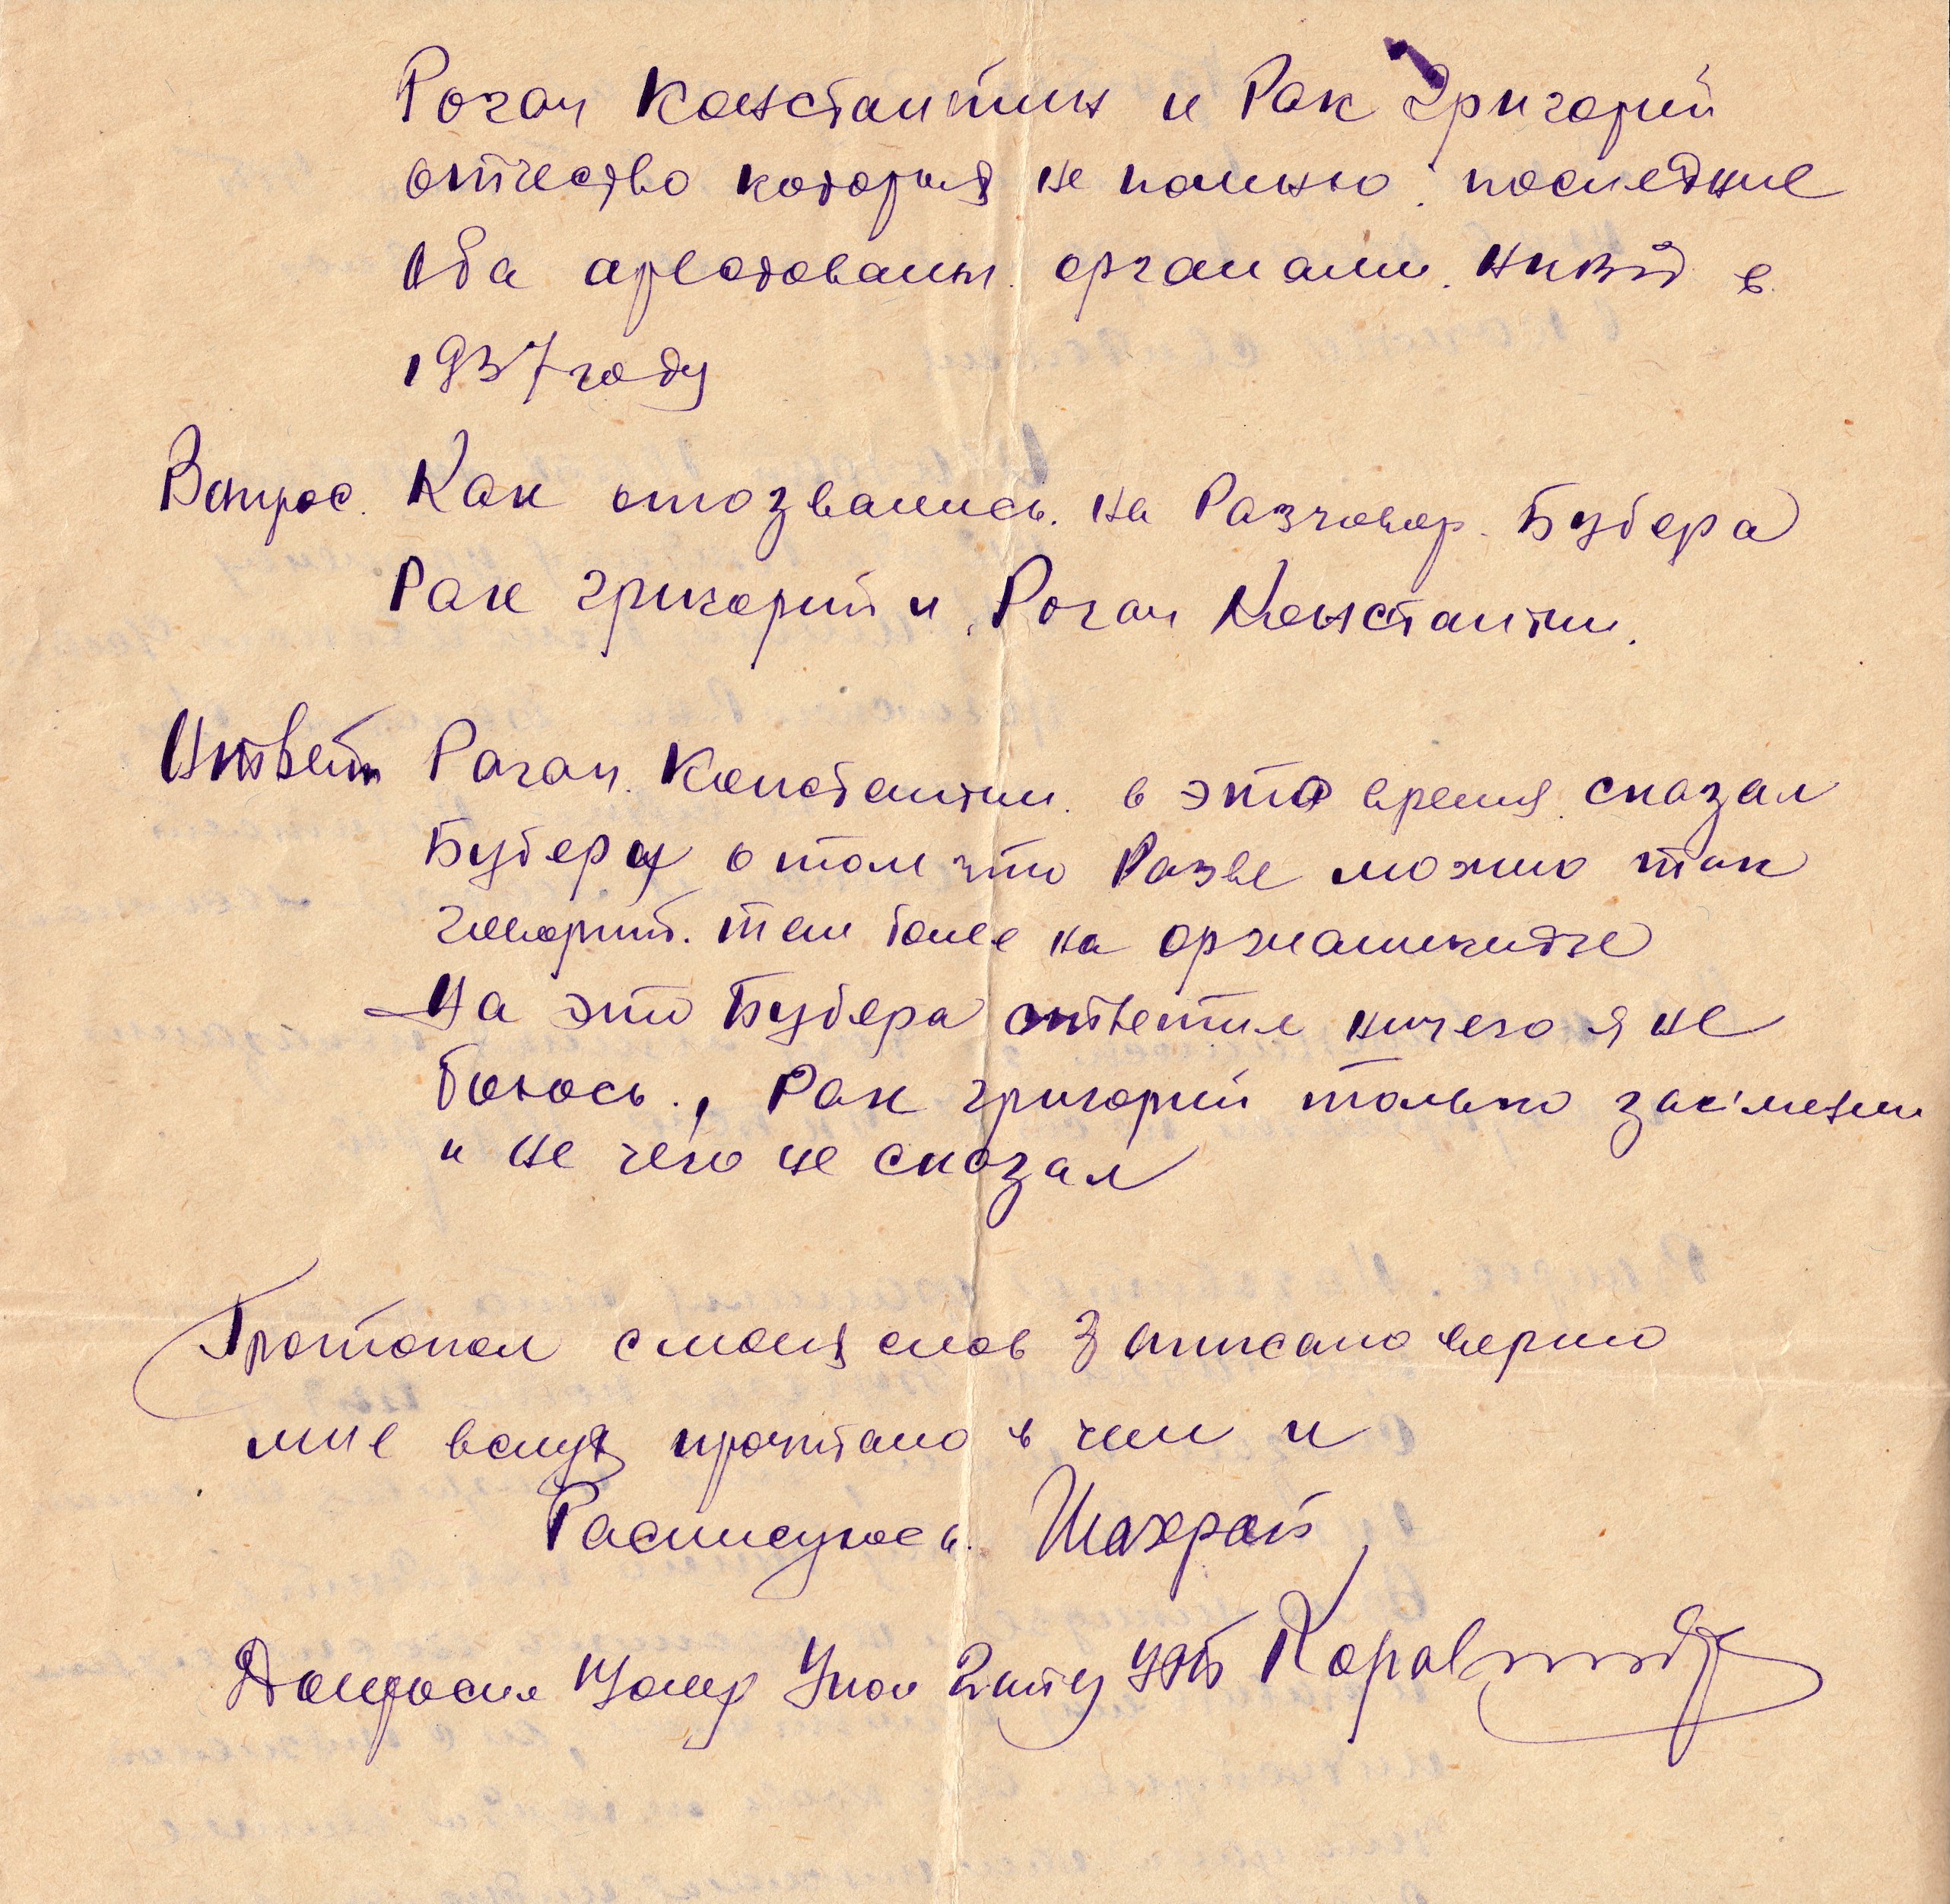 Рогач Константин и Рак Григорий
отчество которых не помню. последние
оба арестованы. органами. НКВД в.
1937 году
Вопрос. Как отозвались. на Разговор. Бубера
Рак григорий и Рогач Константин.
Ответ Рагач. Константин. в это время сказал
Бубера о том что Разве можно так
говорит. тем более на оржаникидзе
На это Бубера ответил ничего я не
боюсь., Рак григорий только засмеялси
и не чего не сказал
Протокол с моих слов записано верно
мне вслух прочитано в чем и
Расписуюсь. Шахрай
Допросил